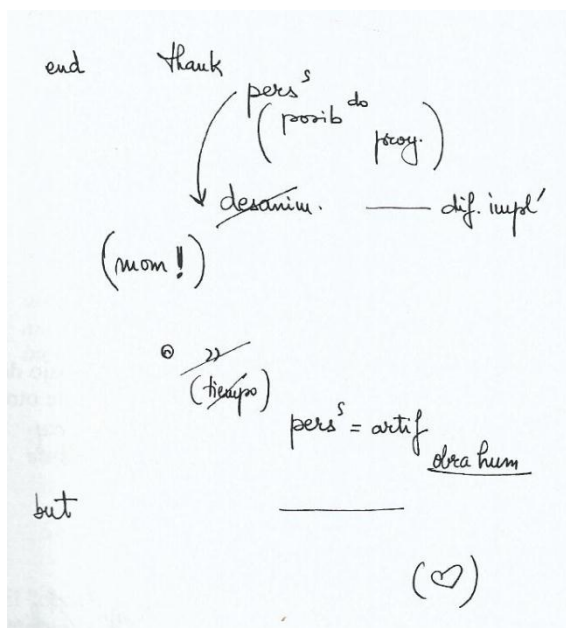 end thank
pers^s
(posib^do
proy.)
desanim. —— dif. impl'
(mom!)
(tiempo)
pers^s = artif
obra hum
but